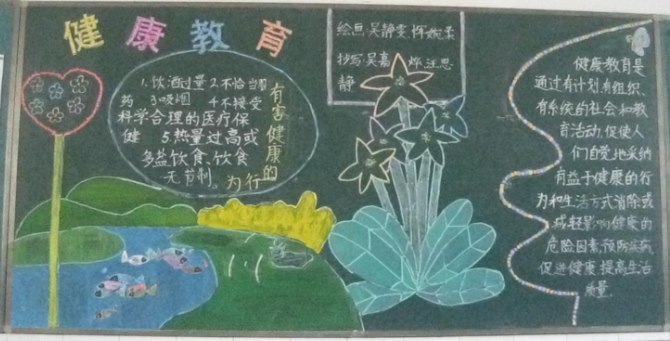 健康教育
1.饮酒过量 2.不恰当用
药 3.吸烟 4.不接受
科学合理的医疗保
健 5.热量过高或
多盐饮食、饮食
无节制
有害健康的
为行
绘画:吴静雯 恽婉柔
抄写:吴嘉烨 汪思
静
健康教育是
通过有计划,有组织,
有系统的社会和教
育活动,促使人
们自觉地采纳
有益于健康的行
为和生活方式,消除或
减轻影响健康的
危险因素,预防疾病,
促进健康,提高生活
质量.